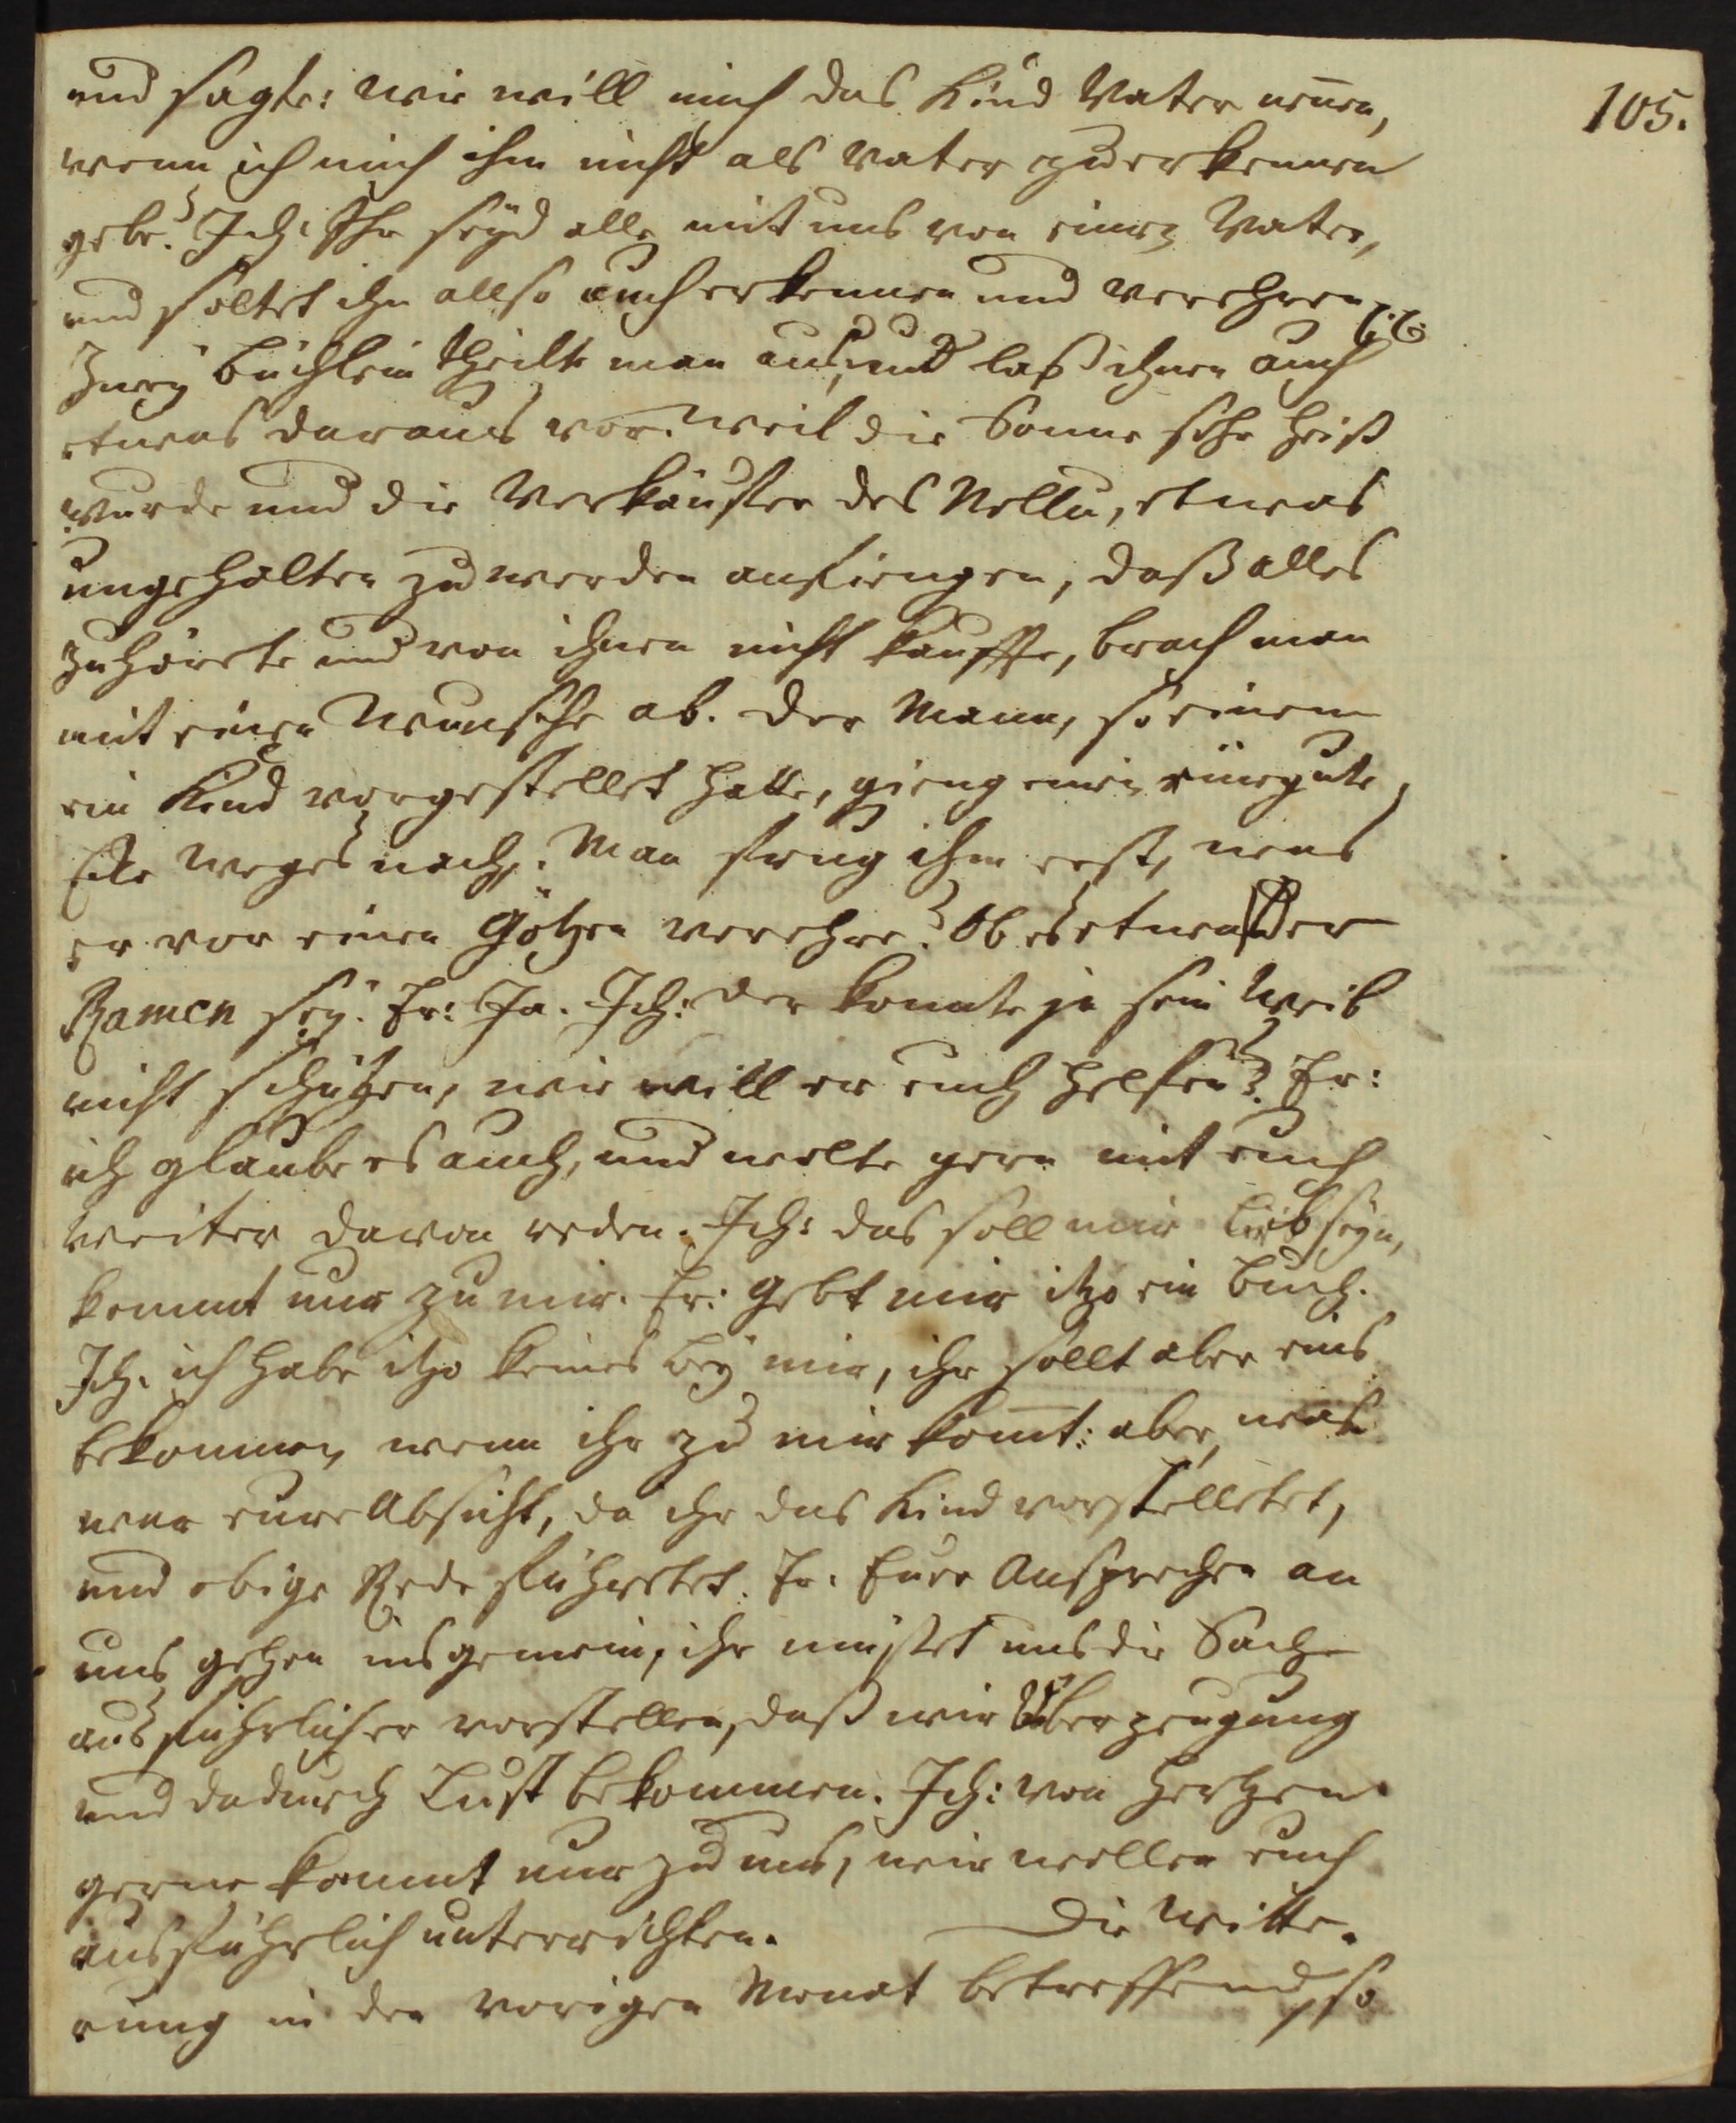 105.
und sagte: wie will mich das Kind Vater neñen,
wenn ich mich ihm nicht als Vater zu erkennen
gebe? Ich: Ihr seyd alle mit uns von einem Vater,
und soltet ihn allso auch erkennen und verehren pp.
Zwey Büchlein theilte man aus, und laß ihnen auch
etwas daraus vor. Weil die Sonne sehr heiß
wurde und die Verkäuffer des Nellu, etwas
ungehalten zu werden anfiengen, daß alles
zuhörete und von ihnen nicht kauffte, brach man
mit einem Wunsche ab. Der Mann, so einem
ein Kind vorgestellet hatte, gieng einem eine gute
Ecke Weges nach. Man frug ihn erst, was
er vor einen Götzen verehre? Ob es etwa der
Ramen sey. Er: Ja. Ich: Der konnte ja sein Weib
nicht schützen, wie will er euch helfen? Er:
ich glaube es auch, und wolte gern mit euch
weiter davon reden. Ich: das soll mir lieb seyn,
kommt nur zu mir. Er: Gebt mir itzo ein Buch.
Ich: ich habe itzo keines bey mir, ihr sollt aber eins
bekommen, wenn ihr zu mir komt: aber, was
war eure Absicht, da ihr das Kind vorstelletet,
und obige Rede führetet. Er: Eure Ansprachen an
uns gehen insgemein, ihr müstet uns die Sache
ausführlicher vorstellen, daß wir Überzeugung
und dadurch Lust bekommen. Ich: Von Hertzen
gerne kommt nur zu uns, wir wollen euch
ausführlich unterrichten. Die Witte-
rung in den vorigen Monat betreffend, so